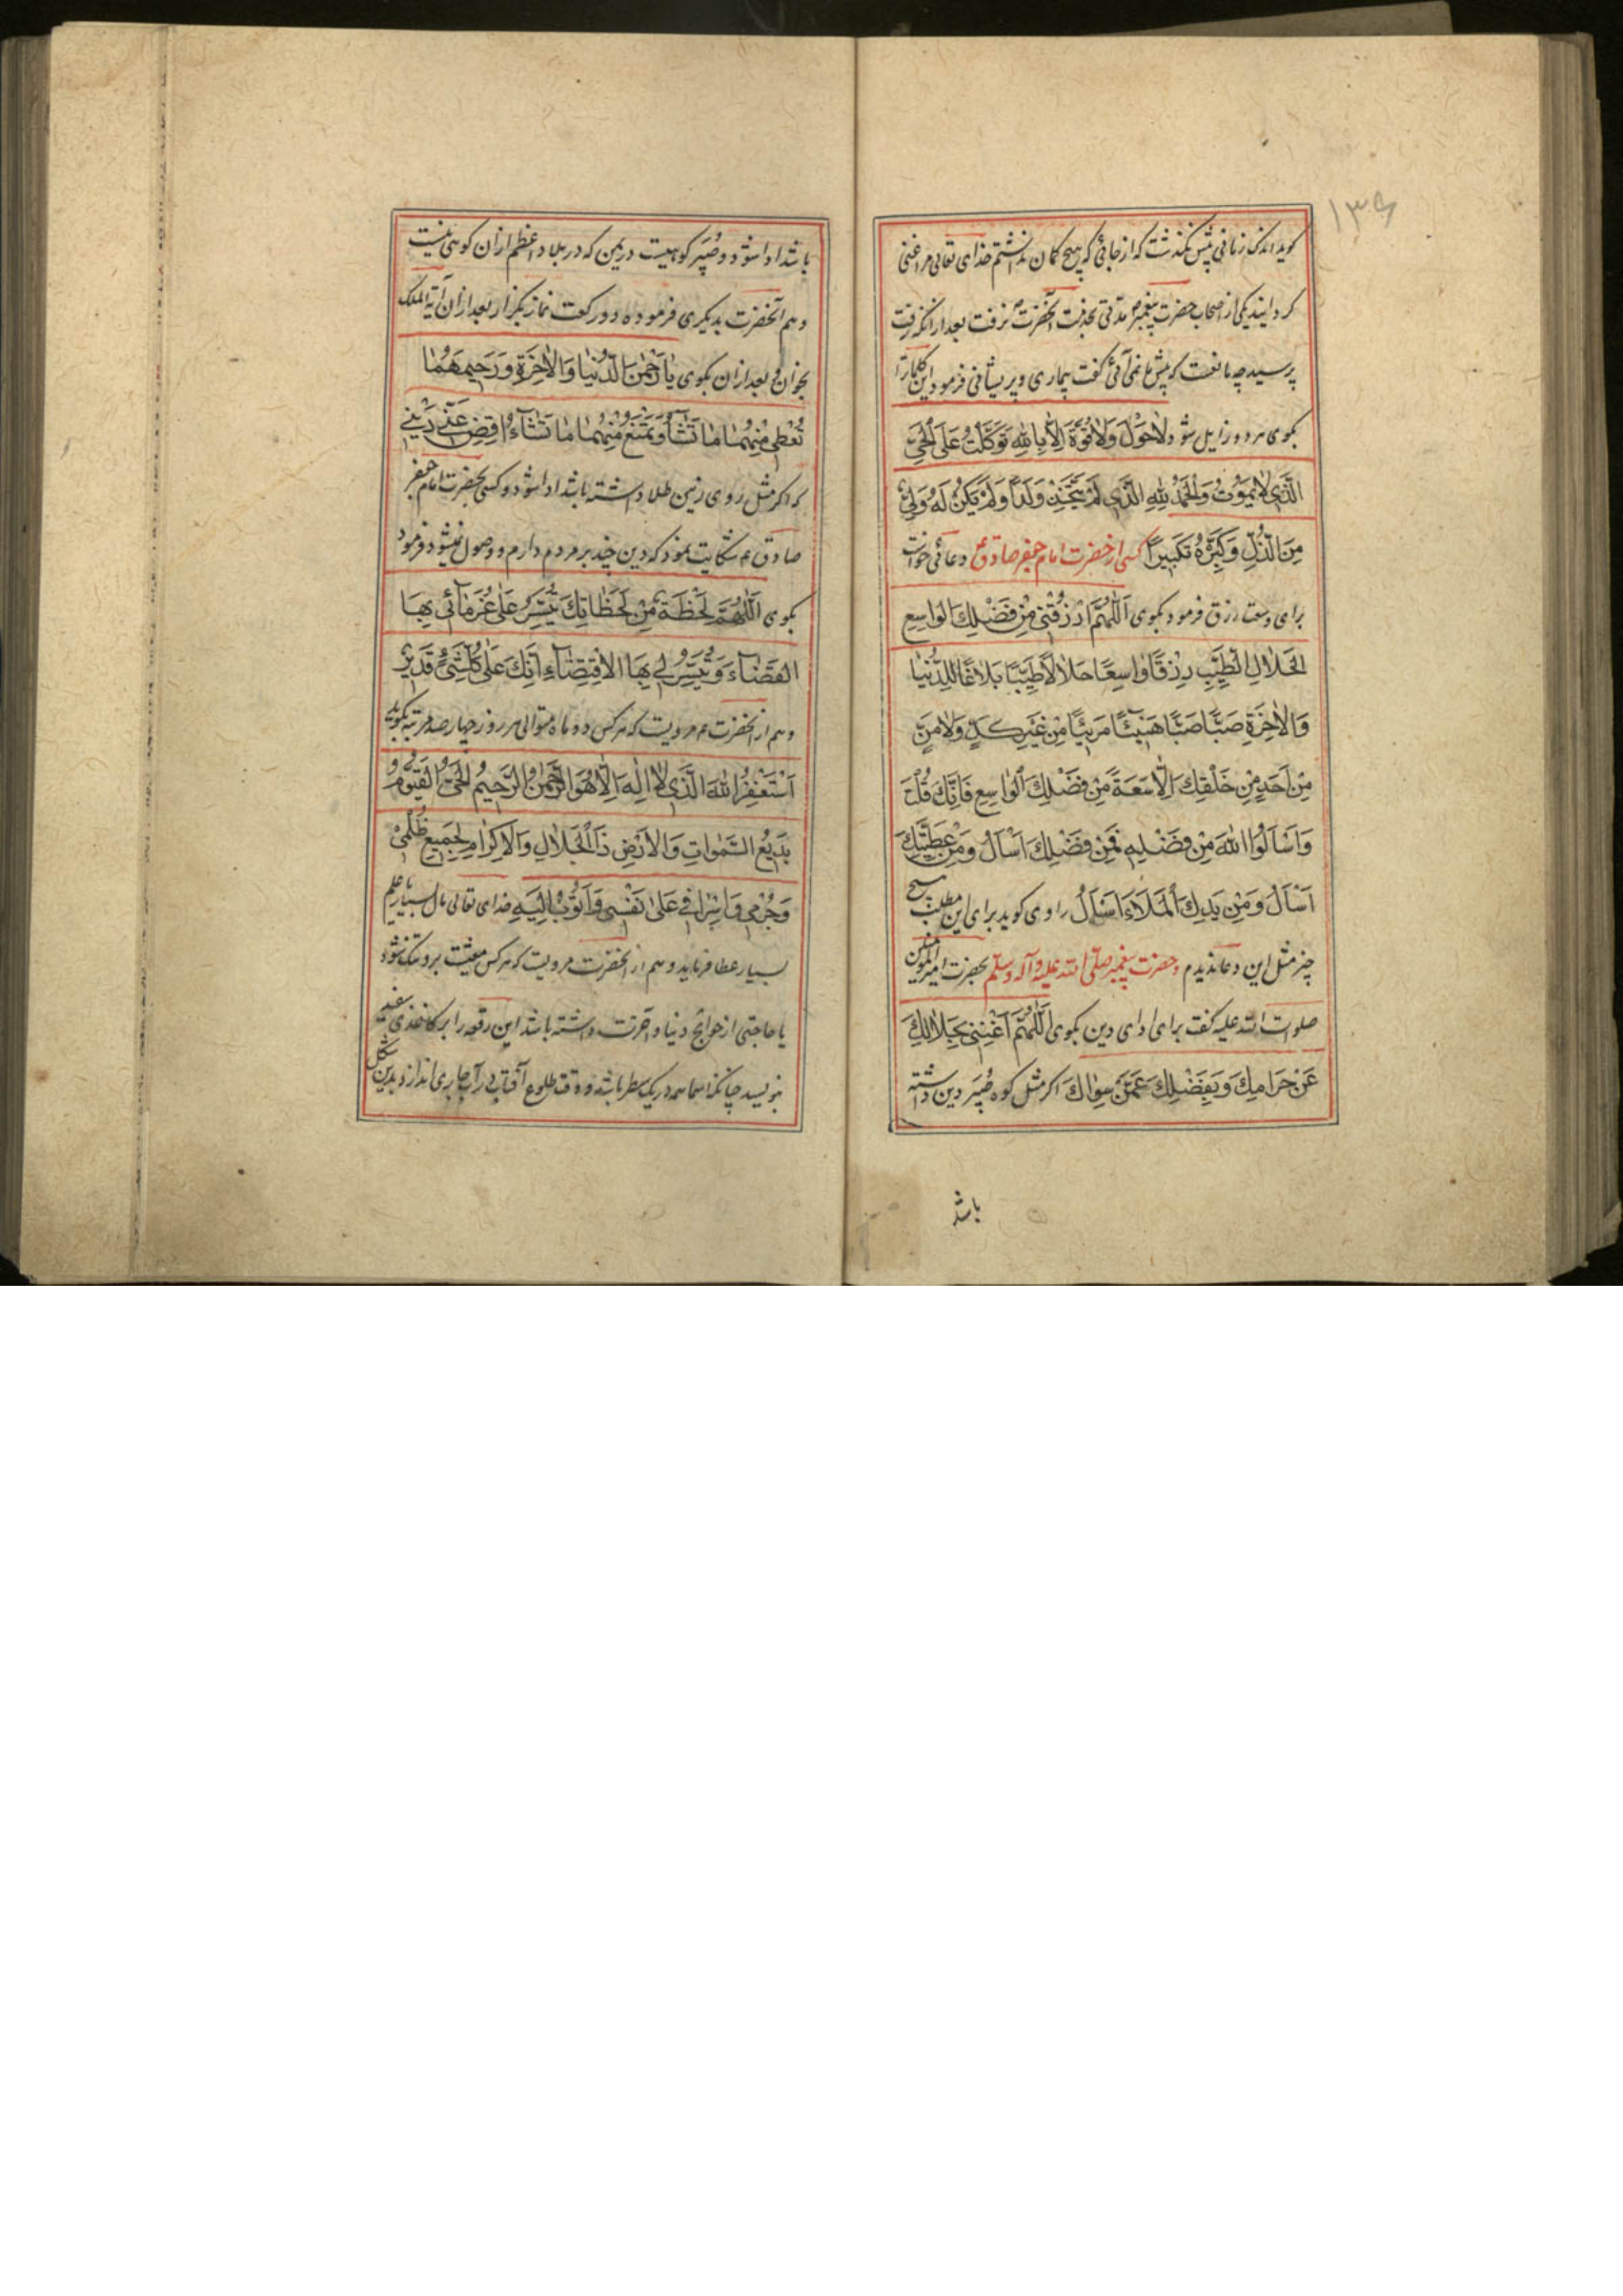 ۱۳۶
کوید اندک زمانی پیش نکذشت که از جائی که هیچ کمان نداشتم خدای تعالی مرا غنی
کردانید یکی از اصحاب حضرت پیغمبر ص مدتی بخدمت آنحضرت نرفت بعد از انکه رفت
پرسید چه مانعست که پیش ما نمی آئی کفت بیماری و پریشانی فرمود این کلمات را
بکوی هر دو زایل شود لَاحَوْلَ وَلَاقُوَّةَ اِلَّا بِاللهِ تَوَكَّلْتُ عَلَى الْحَيِّ
الَّذِي لَا يَمُوتُ وَالْحَمْدُ لِلّٰهِ الَّذِي لَمْ يَتَّخِذْ وَلَدًا وَلَمْ يَكُنْ لَهُ وَلِيٌّ
مِنَ الذُّلِّ وَكَبِّرْهُ تَكْبِيرًا کسی از حضرت امام جعفر صادق ع دعائی خواست
برای وسعت رزق فرمود بکوی اَللّٰهُمَّ ارْزُقْنِي مِنْ فَضْلِكَ الْوَاسِعِ
الْحَلَالِ الطَّيِّبِ رِزْقًا وَاسِعًا حَلَالًا طَيِّبًا بَلَاغًا لِلدُّنْيَا
وَالْاٰخِرَةِ صَبًّا صَبًّا هَنِيئًا مَرِيئًا مِنْ غَيْرِ كَدٍّ وَلَا مَنٍّ
مِنْ اَحَدٍ مِنْ خَلْقِكَ اِلَّا سَعَةً مِنْ فَضْلِكَ الْوَاسِعِ فَاِنَّكَ قُلْتَ
وَاسْاَلُوا اللهَ مِنْ فَضْلِهِ فَمِنْ فَضْلِكَ اَسْاَلُ وَمِنْ عَطِيَّتِكَ
اَسْاَلُ وَمِنْ يَدِكَ الْمَلَاءِ اَسْاَلُ راوی کوید برای این مطلب هیچ
چیز مثل این دعا ندیدم و حضرت پیغمبر صلی الله علیه وآله وسلم بحضرت امیرالمؤمنین
صلوات الله علیه کفت برای ادای دین بکوی اَللّٰهُمَّ اَغْنِنِي بِحَلَالِكَ
عَنْ حَرَامِكَ وَبِفَضْلِكَ عَمَّنْ سِوَاكَ اکر مثل کوه صُبَیر دین داشته
باشد
باشد ادا شود و صُبَیر کوهیست در یمن که در بلاد اعظم از ان کوهی نیست
و هم آنحضرت بدیکری فرموده دو رکعت نماز بکزار بعد از ان آیة الملک
بخوان و بعد از ان بکوی يَا رَحْمٰنَ الدُّنْيَا وَالْاٰخِرَةِ وَرَحِيمَهُمَا
تُعْطِي مِنْهُمَا مَا تَشَآءُ وَتَمْنَعُ مِنْهُمَا مَا تَشَآءُ اقْضِ عَنِّي دَيْنِي
که اکر مثل روی زمین طلا داشته باشد ادا شود و کسی بحضرت امام جعفر
صادق ع شکایت نمود که دین چند بر مردم دارم و وصول نمیشود فرمود
بکوی اَللّٰهُمَّ لَحْظَةً مِنْ لَحَظَاتِكَ تُيَسِّرُ عَلٰى غُرَمَآئِي بِهَا
الْقَضَآءَ وَتُيَسِّرُ لِي بِهَا الْاِقْتِضَآءَ اِنَّكَ عَلٰى كُلِّ شَيْءٍ قَدِيرٌ
و هم از آنحضرت ع مرویست که هر کس دو ماه متوالی هر روز چهار صد مرتبه بکوید
اَسْتَغْفِرُ اللهَ الَّذِي لَا اِلٰهَ اِلَّا هُوَ الرَّحْمٰنُ الرَّحِيمُ الْحَيُّ الْقَيُّومُ
بَدِيعُ السَّمٰوَاتِ وَالْاَرْضِ ذَا الْجَلَالِ وَالْاِكْرَامِ لِجَمِيعِ ظُلْمِي
وَجُرْمِي وَاِسْرَافِي عَلٰى نَفْسِي وَاَتُوبُ اِلَيْهِ خدای تعالی مال بسیار یا علم
بسیار عطا فرماید و هم از آنحضرت مرویست که هر کس معیشت برو تنک شود
یا حاجتی از حوائج دنیا و آخرت داشته باشد این رقعه را بر کاغذی سفید
بنویسد چنانکه اسما همه در یک سطر باشد و وقت طلوع آفتاب در آب جاری اندازد بدین شکل